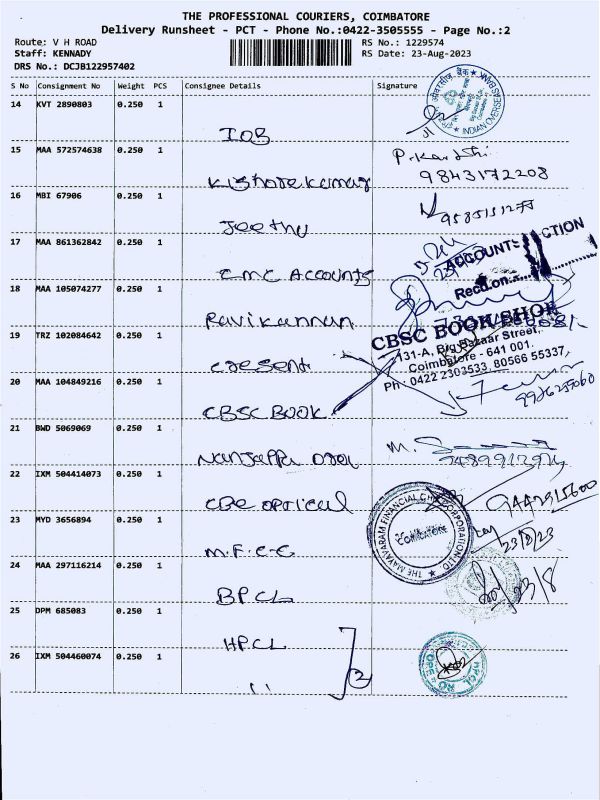 THE PROFESSIONAL COURIERS, COIMBATORE
Delivery Runsheet - PCT - Phone No.:0422-3505555 - Page No.:2
Route: V H ROAD
RS No.: 1229574
Staff: KENNADY
RS Date: 23-Aug-2023
DRS No.: DCJB122957402
S No Consignment No Weight PCS Consignee Details Signature
14 KVT 2890803 0.250 1 IOB
INDIAN OVERSEAS BANK
15 MAA 572574638 0.250 1 Kishorekumar
9843172208
16 MBI 67906 0.250 1 Jeethu
17 MAA 861362842 0.250 1 CMC Accounts
ACCOUNTS SECTION
Recd.on
18 MAA 105074277 0.250 1 Ravikannan
19 TRZ 102084642 0.250 1 Cresent
CBSC BOOK SHOP
131-A, Big Bazaar Street,
Coimbatore - 641 001.
Ph: 0422 2303533, 80566 55337,
20 MAA 104849216 0.250 1 CBSC BOOK
21 BWD 5069069 0.250 1 Nanjappa
M.
22 IXM 504414073 0.250 1 CBE optical
23 MYD 3656894 0.250 1 M.F.C.C
THE MAYAVARAM FINANCIAL CHIT CORPORATION LTD.
Coimbatore
23/8/23
24 MAA 297116214 0.250 1 BPCL
23/8
25 DPM 685083 0.250 1 HPCL
26 IXM 504460074 0.250 1 11
2
HPCL